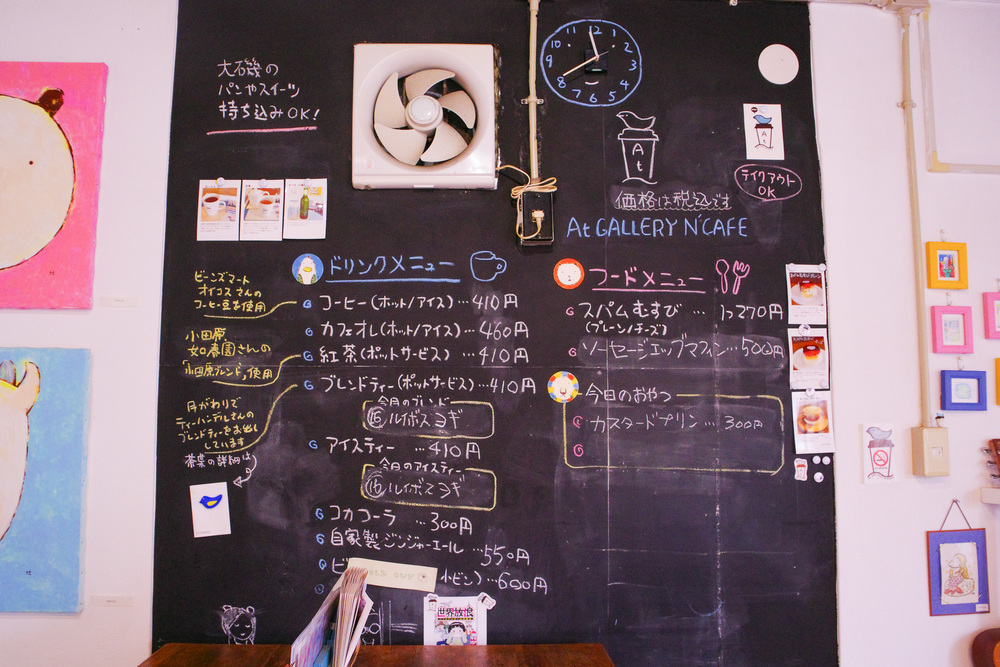 大石磯の
パンやスイーツ
持ち込みOK!
12
1
2
3
4
5
6
7
8
9
10
11
At
At
テイクアウト
OK
価格は税込です
At GALLERY N'CAFE
ドリンクメニュー
コーヒー(ホット/アイス)…410円
カフェオレ(ホット/アイス)…460円
紅茶(ポットサービス)…410円
ブレンドティー(ポットサービス)…410円
今月のブレンド
⑮ルイボスヨギ
アイスティー…410円
今月のアイスティー
⑮ルイボスヨギ
コカコーラ…300円
自家製ジンジャーエール…550円
ビ
小ビン)…600円
ビーンズマート
オイコスさんの
コーヒー豆を使用
小田原
如春園さんの
「小田原ブレンド」使用
月がわりで
ティーハンデルさんの
ブレンドティーをお出し
しています
茶葉の詳細は
フードメニュー
スパムむすび…1つ270円
(プレーン/チーズ)
ソーセージエッグマフィン…500円
今日のおやつ
カスタードプリン…300円
世界放浪